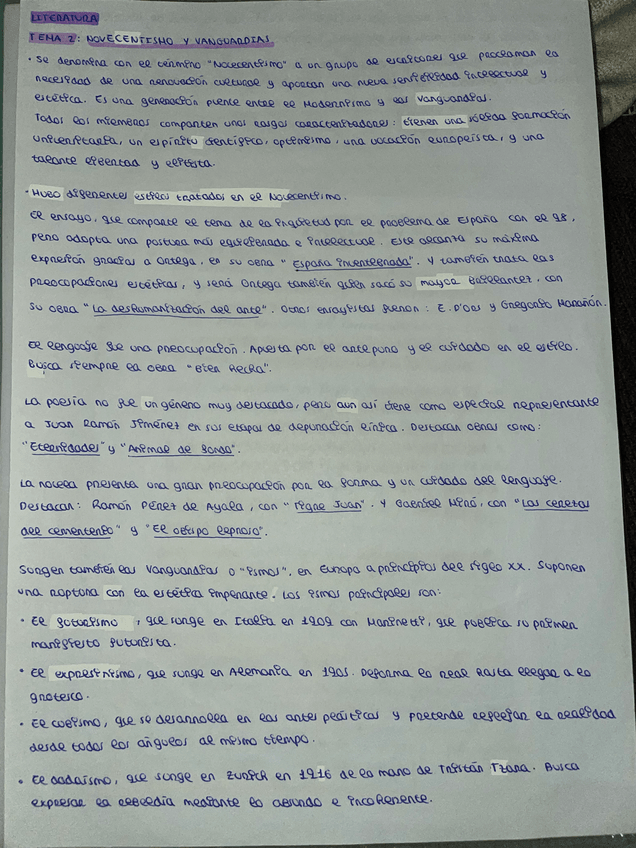 LITERATURA
TEMA 2: NOVECENTISMO Y VANGUARDIAS.
· Se denomina con el término "Novecentismo" a un grupo de escritores que proclaman la
necesidad de una renovación cultural y aportan una nueva sensibilidad intelectual y
estética. Es una generación puente entre el Modernismo y las Vanguardias.
Todos los miembros comparten unos rasgos caracterizadores: tienen una sólida formación
universitaria, un espíritu científico, optimismo, una vocación europeísta, y una
talante libertad y elitista.
· Hubo diferentes estilos tratados en el Novecentismo.
El ensayo, que comparte el tema de la inquietud por el problema de España con el 98,
pero adopta una postura más equilibrada e intelectual. Este alcanza su máxima
expresión gracias a Ortega, en su obra "España invertebrada". Y también trata las
preocupaciones estéticas, y será Ortega también quien sacó su mayor brillantez, con
su obra "La deshumanización del arte". Otros ensayistas fueron: E. D'Ors y Gregorio Marañón.
El lenguaje fue una preocupación. Apuesta por el arte puro y el cuidado en el estilo.
Busca siempre la obra "Bien hecha".
La poesía no fue un género muy destacado, pero aun así tiene como especial representante
a Juan Ramón Jiménez en sus etapas de depuración lírica. Destacan obras como:
"Eternidades" y "Animal de fondo".
La novela presenta una gran preocupación por la forma y un cuidado del lenguaje.
Destacan: Ramón Pérez de Ayala, con "Tigre Juan". Y Gabriel Miró, con "Las cerezas
del cementerio" y "El obispo leproso".
Surgen también las Vanguardias o "ismos", en Europa a principios del siglo XX. Suponen
una ruptura con la estética imperante. Los ismos principales son:
· El futurismo, que surge en Italia en 1909 con Marinetti, que publica su primer
manifiesto futurista.
· El expresinismo, que surge en Alemania en 1905. Deforma lo real hasta llegar a lo
grotesco.
· El cubismo, que se desarrolla en las artes plásticas y pretende reflejar la realidad
desde todos los ángulos al mismo tiempo.
· El dadaísmo, que surge en Zurich en 1916 de la mano de Tristán Tzara. Busca
expresar la rebeldía mediante lo absurdo e incoherente.